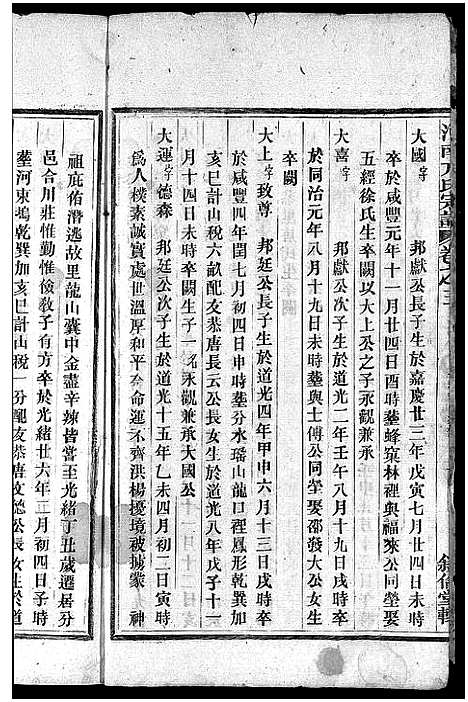 大國字 邦獻公長子生於嘉慶廿三年戊寅七月廿四日未時
卒於咸豐元年十一月廿四日酉時塟蜂窠林裡與福來公同塋娶
方經徐氏生卒闕以大上公之子永觀兼承
大喜字 邦獻公次子生於道光二年壬午八月十九日戌時卒
於同治元年八月十九日未時塟與士傅公同塋娶邵發大公女生
卒闕
大上字致尊 邦廷公長子生於道光四年甲申六月十三日戌時卒
於咸豐四年閏七月初四日申時塟分水瑶山龍口裡鳳形乾巽加
亥巳計山稅六畝配友恭唐長云公長女生於道光八年戊子十一
月十四日未時卒闕生子一永觀兼承大國公
大運字德森 邦廷公次子生於道光十五年乙未四月初二日寅時
爲人樸素誠實處世溫厚和平奈命運不齊洪楊擾境被擄蒙 神
祖庇佑潛逃故里龍山囊中金盡辛辣皆嘗至光緒丁丑歲遷居分
邑合川莊惟勤惟儉敎子有方卒於光緒廿六年正月初四日子時
塟河東塢乾巽加亥巳計山稅一分配友恭唐文德公長女生於道